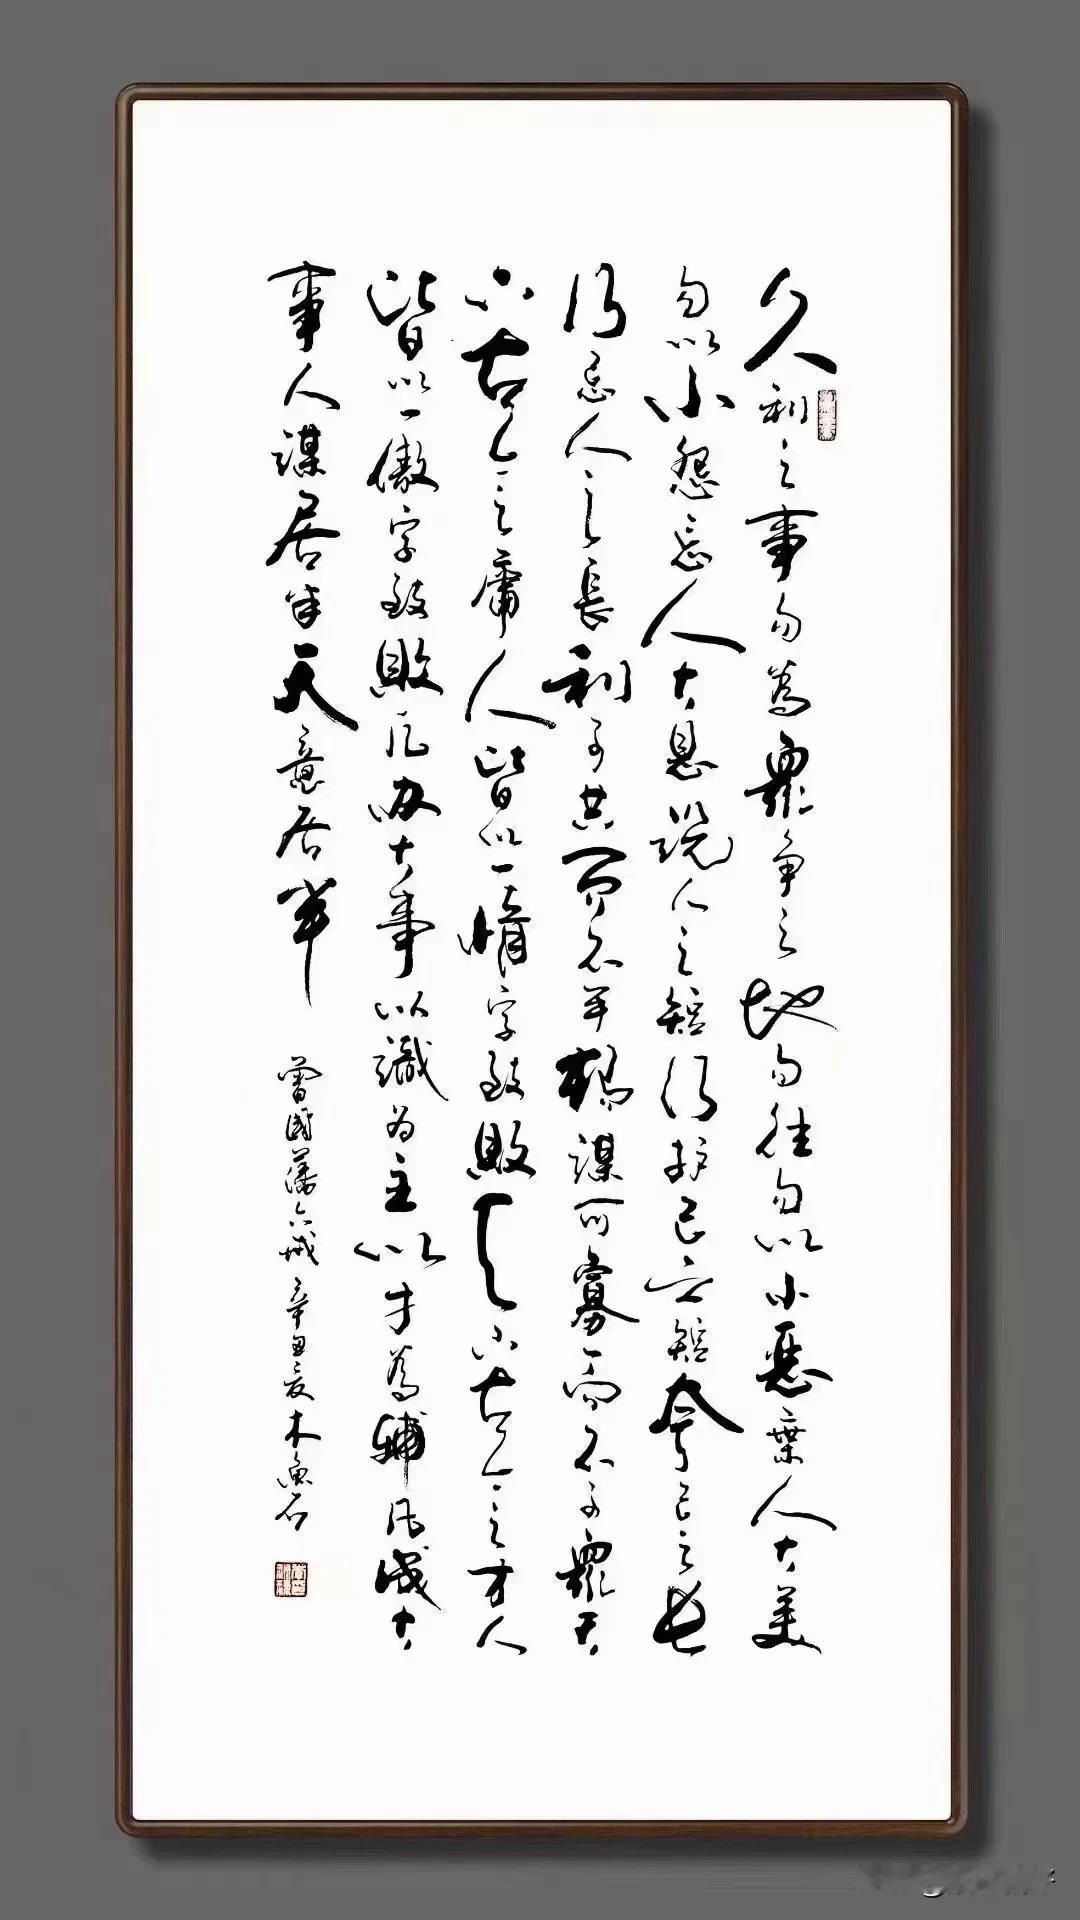 久利之事勿為眾爭之地勿往勿以小惡棄人大美
勿以小怨忘人大恩説人之短乃护己之短夸己之长
乃忌人之長利可共而不可獨謀可寡而不可眾天
下古今之庸人皆以一惰字致敗天下古今之才人
皆以一傲字致敗凡办大事以識为主以才為輔凡成大
事人謀居半天意居半
曾國藩六戒 辛丑夏木魚石